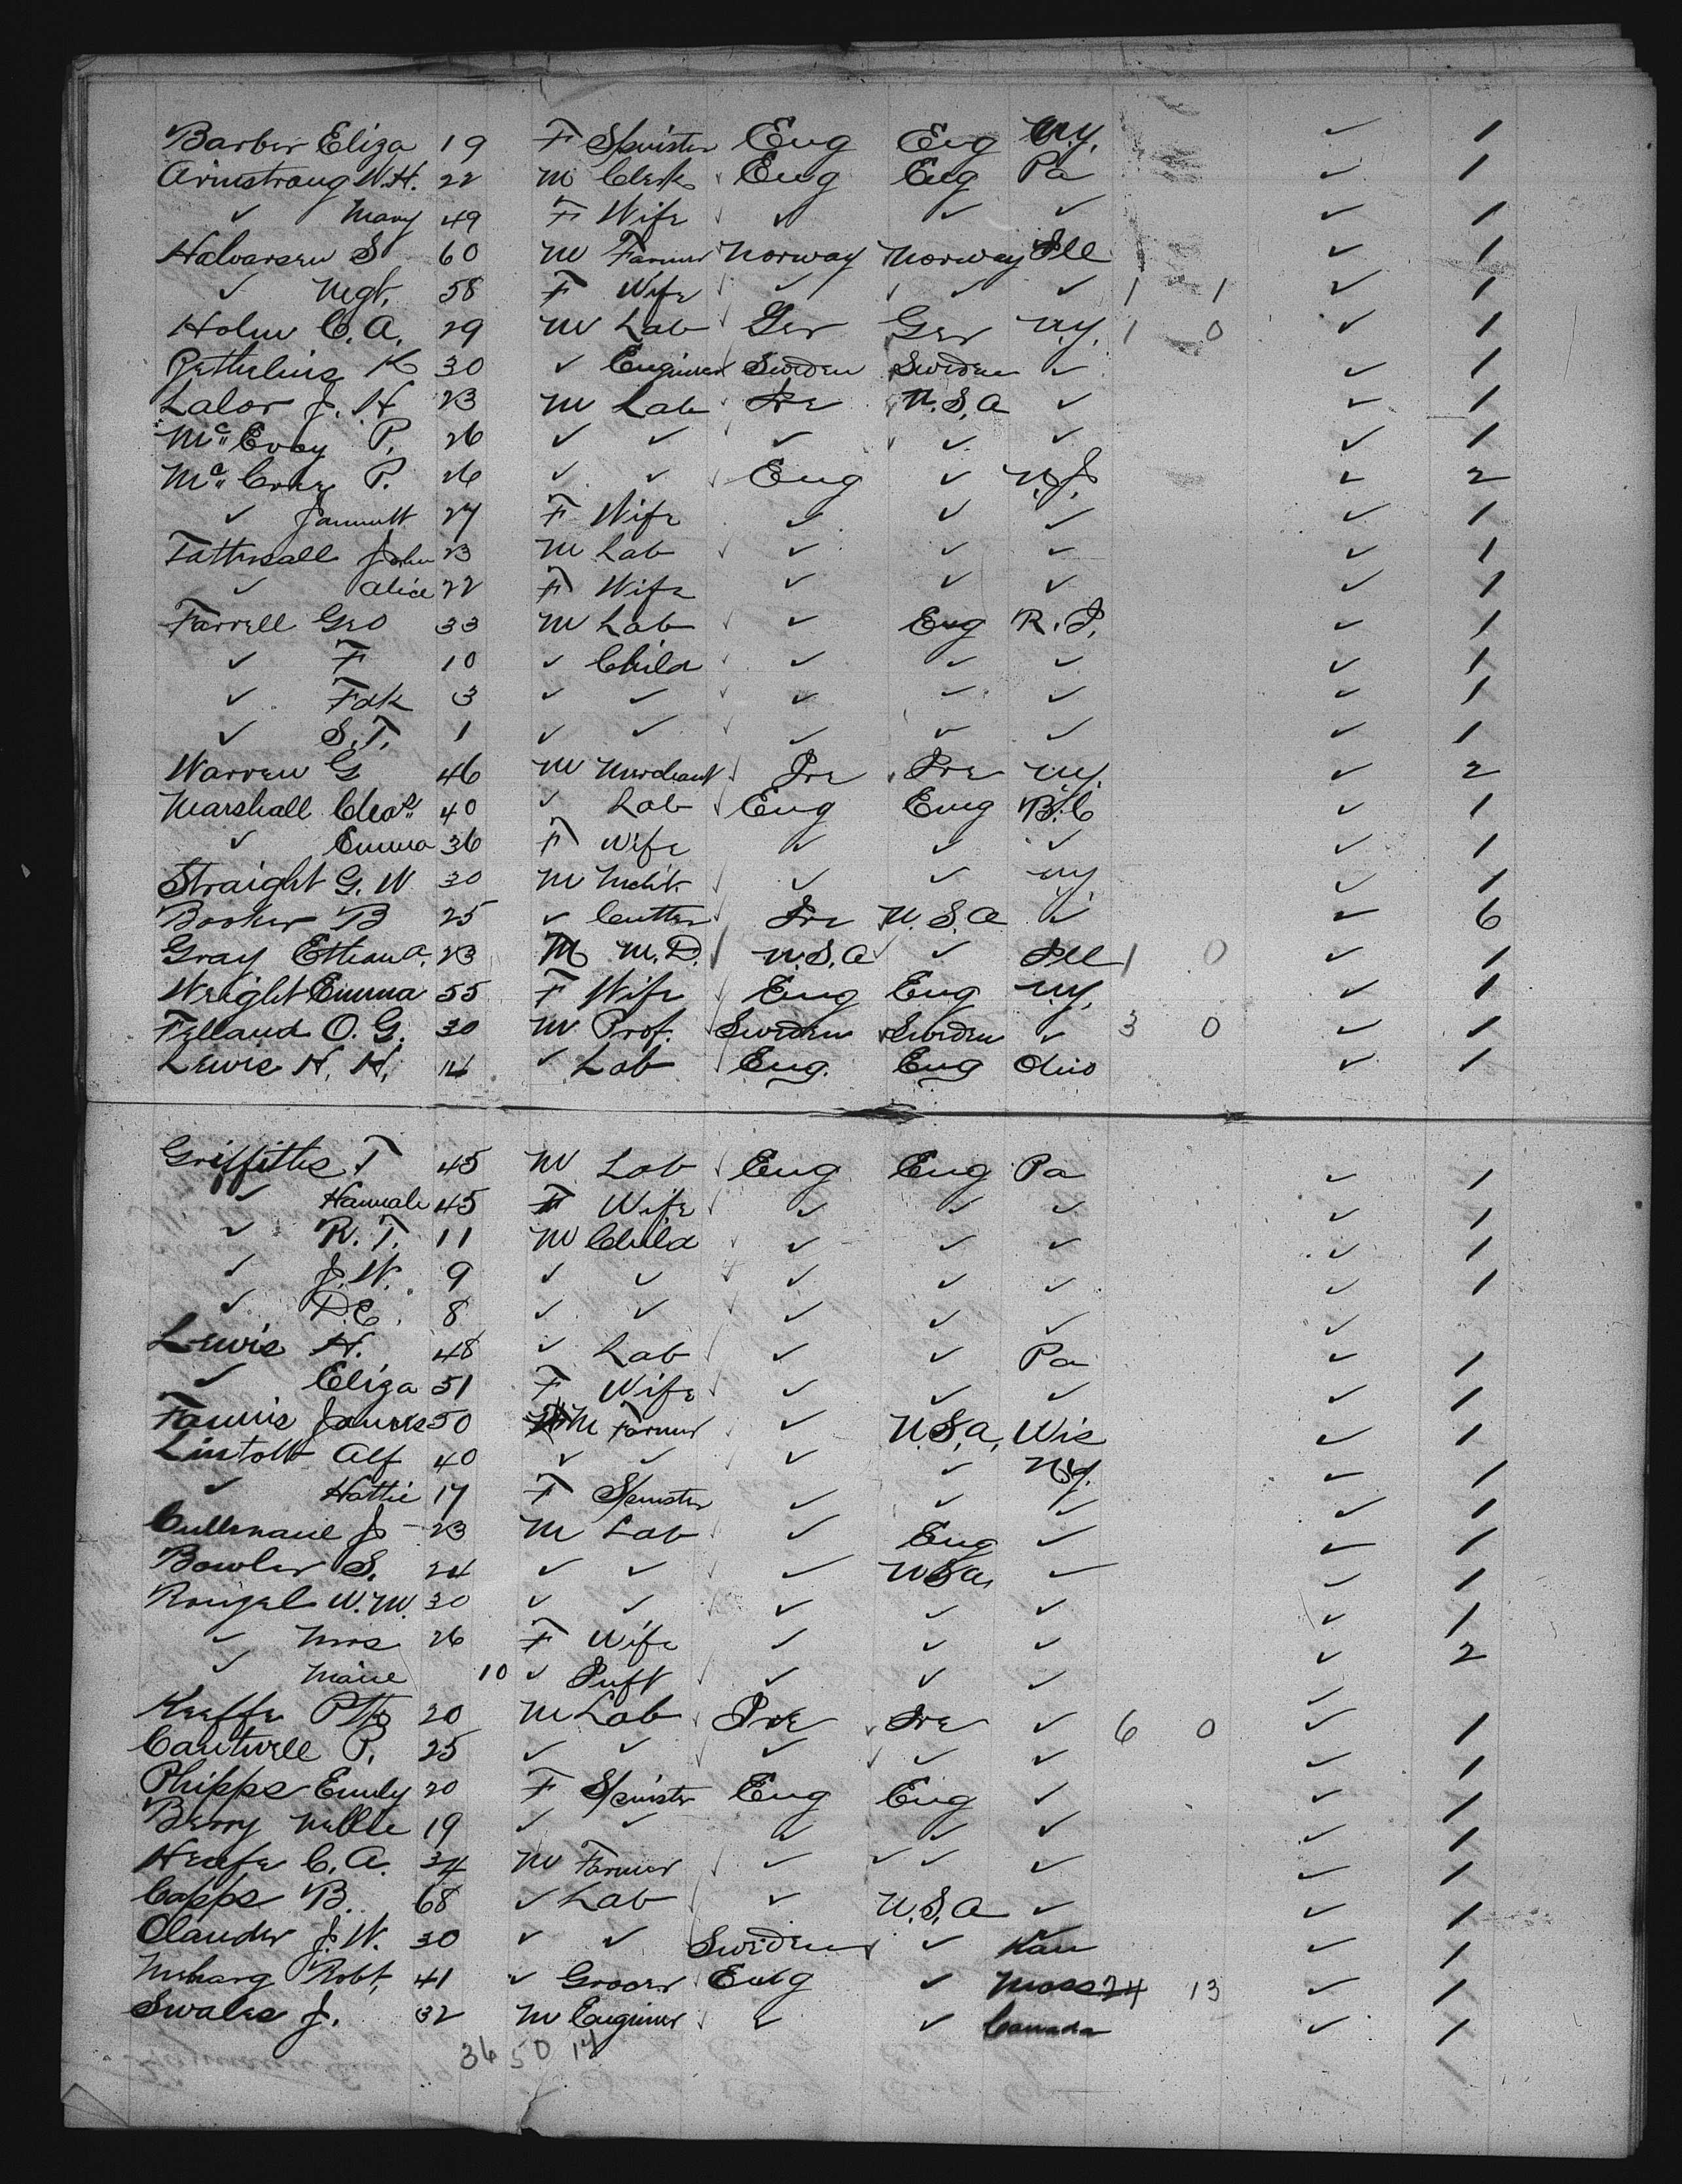 Barber Eliza 19 F Spinster Eng Eng N.Y. ✓ 1
Armstrong W.H. 22 M Clerk Eng Eng Pa ✓ 1
✓ Mary 49 F Wife ✓ ✓ ✓ ✓ 1
Halvarsen S 60 M Farmer Norway Norway Ill ✓ 1
✓ Mgt. 58 F Wife ✓ ✓ ✓ 1 1 ✓ 1
Holm C. A. 29 M Lab Ger Ger N.Y. 1 0 ✓ 1
K 30 ✓ Engineer Sweden Sweden ✓ ✓ 1
Lalor J. H 23 M Lab Ire U.S.A ✓ ✓ 1
McEvoy P. 26 ✓ ✓ ✓ ✓ ✓ ✓ 1
P. 26 ✓ ✓ Eng ✓ N.J. ✓ 2
✓ 27 F Wife ✓ ✓ ✓ ✓ 1
Tattersall John 23 M Lab ✓ ✓ ✓ ✓ 1
✓ Alice 22 F Wife ✓ ✓ ✓ ✓ 1
Farrell Geo 33 M Lab ✓ Eng R.I. ✓ 1
✓ F 10 ✓ Child ✓ ✓ ✓ ✓ 1
✓ Fdk 3 ✓ ✓ ✓ ✓ ✓ ✓ 1
✓ S.T. 1 ✓ ✓ ✓ ✓ ✓ ✓ 1
Warren G 46 M Merchant Ire Ire N.Y. ✓ 2
Marshall Chas 40 ✓ Lab Eng Eng B.C ✓ 1
✓ Emma 36 F Wife ✓ ✓ ✓ ✓ 1
Straight G. W 30 M ✓ ✓ N.Y. ✓ 1
Booker B 25 ✓ Cutter Ire U.S.A ✓ ✓ 6
Gray Ethan A. 23 M M.D. U.S.A ✓ Ill 1 0 ✓ 1
Wright Emma 55 F Wife Eng Eng N.Y. ✓ 1
Felland O. G. 30 M Prof. Sweden Sweden ✓ 3 0 ✓ 1
Lewis H. H. ✓ Lab Eng. Eng Ohio ✓ 1
Griffiths T 45 M Lab Eng Eng Pa ✓ 1
✓ Hannah 45 F Wife ✓ ✓ ✓ ✓ 1
✓ R. T. 11 M Child ✓ ✓ ✓ ✓ 1
✓ J. W. 9 ✓ ✓ ✓ ✓ ✓ ✓ 1
✓ D.C. 8 ✓ ✓ ✓ ✓ ✓ ✓
Lewis H. 48 ✓ Lab ✓ ✓ Pa ✓ 1
✓ Eliza 51 F Wife ✓ ✓ ✓ ✓ 1
James 50 M Farmer ✓ U.S.A. Wis ✓ 1
Lintott Alf 40 ✓ ✓ ✓ ✓ N.Y. ✓ 1
✓ Hattie 17 F Spinster ✓ ✓ ✓ ✓ 1
Cullenane J 23 M Lab ✓ Eng ✓ ✓ 1
Bowler S. 24 ✓ ✓ ✓ U.S.A. ✓ ✓ 1
W.M. 30 ✓ ✓ ✓ ✓ ✓ ✓ 1
✓ Mrs 26 F Wife ✓ ✓ ✓ ✓ 2
✓ Marie 10 ✓ Inft ✓ ✓ ✓ ✓
Keeffe 20 M Lab Ire Ire ✓ 6 0 ✓ 1
Cantwell P. 25 ✓ ✓ ✓ ✓ ✓ ✓ 1
Phipps Emily 20 F Spinster Eng Eng ✓ ✓ 1
Berry Nellie 19 ✓ ✓ ✓ ✓ ✓ ✓ 1
C. A. 34 M Farmer ✓ ✓ ✓ ✓ ✓ 1
Capps B. 68 ✓ Lab ✓ U.S.A ✓ ✓ 1
J. W. 30 ✓ ✓ Sweden ✓ Kan ✓ 1
Robt. 41 ✓ Grocer Eng ✓ Mass 24 13 ✓ 1
Swales J. 32 M Engineer ✓ ✓ Canada ✓ 1
36 50 14